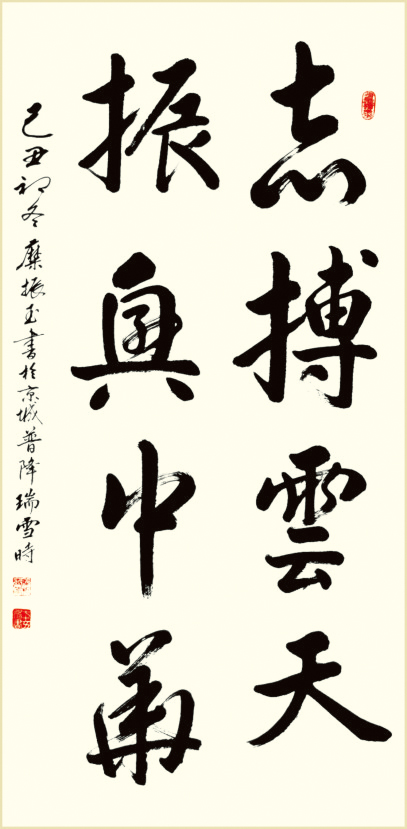 志搏雲天
振興中華
己丑初冬糜振玉書於京城普降瑞雪時